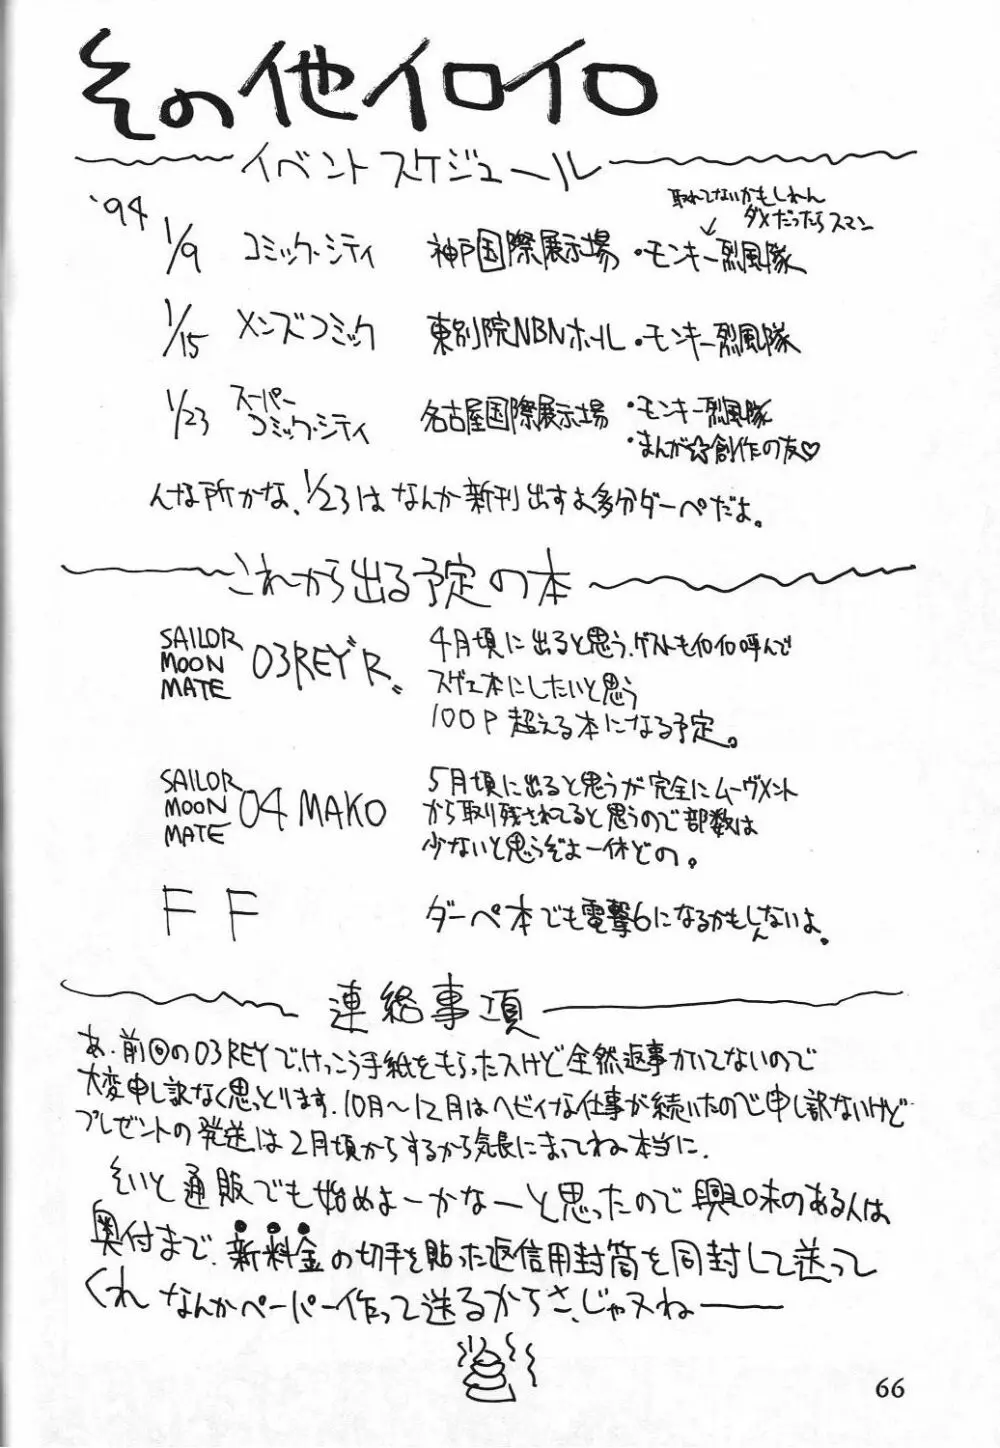 その他イロイロ
イベントスケジュール
'94
取れてないかもしれん
ダメだったらスマン
1/9 コミック・シティ 神戸国際展示場 ・モンキー烈風隊
1/15 メンズコミック 東別院NBNホール ・モンキー烈風隊
1/23 スーパー
コミック・シティ 名古屋国際展示場 ・モンキー烈風隊
・まんが☆創作の友♡
んな所かな、1/23はなんか新刊出すよ多分ダーペだよ。
これから出る予定の本
SAILOR
MOON
MATE
03REY"R〟
4月頃に出ると思う、ゲストもイロイロ呼んで
スゲェ本にしたいと思う
100P超える本になる予定。
SAILOR
MOON
MATE
04MAKO
5月頃に出ると思うが完全にムーヴメント
から取り残されてると思うので部数は
少ないと思うぞよ一休どの。
FF
ダーペ本でも電撃6になるかもしんないよ。
連絡事項
あ、前回の03REYでけっこう手紙をもらったスけど全然返事かいてないので
大変申し訳なく思っとります、10月〜12月はヘビィな仕事が続いたので申し訳ないけど
プレゼントの発送は2月頃からするから気長にまっててね本当に、
そいと通販でも始めよーかなーと思ったので興味のある人は
奥付まで、新料金の切手を貼った返信用封筒を同封して送って
くれ なんかペーパー作って送るからさ、じゃヌね──
66